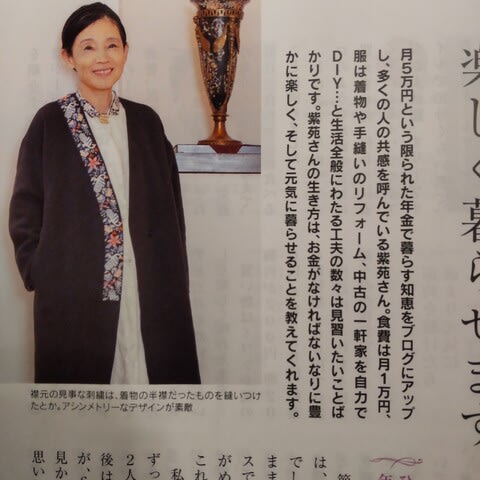 楽しく暮らせます
月5万円という限られた年金で暮らす知恵をブログにアップ
し、多くの人の共感を呼んでいる紫苑さん。食費は月1万円、
服は着物や手縫いのリフォーム、中古の一軒家を自力で
DIY…と生活全般にわたる工夫の数々は見習いたいことば
かりです。紫苑さんの生き方は、お金がなければないなりに豊
かに楽しく、そして元気に暮らせることを教えてくれます。
襟元の見事な刺繍は、着物の半襟だったものを縫いつけ
たとか。アシンメトリーなデザインが素敵
節
は、
でし
まま
スで
がめ
これ
私
ずっ
2人
後は
が、
見か
思い